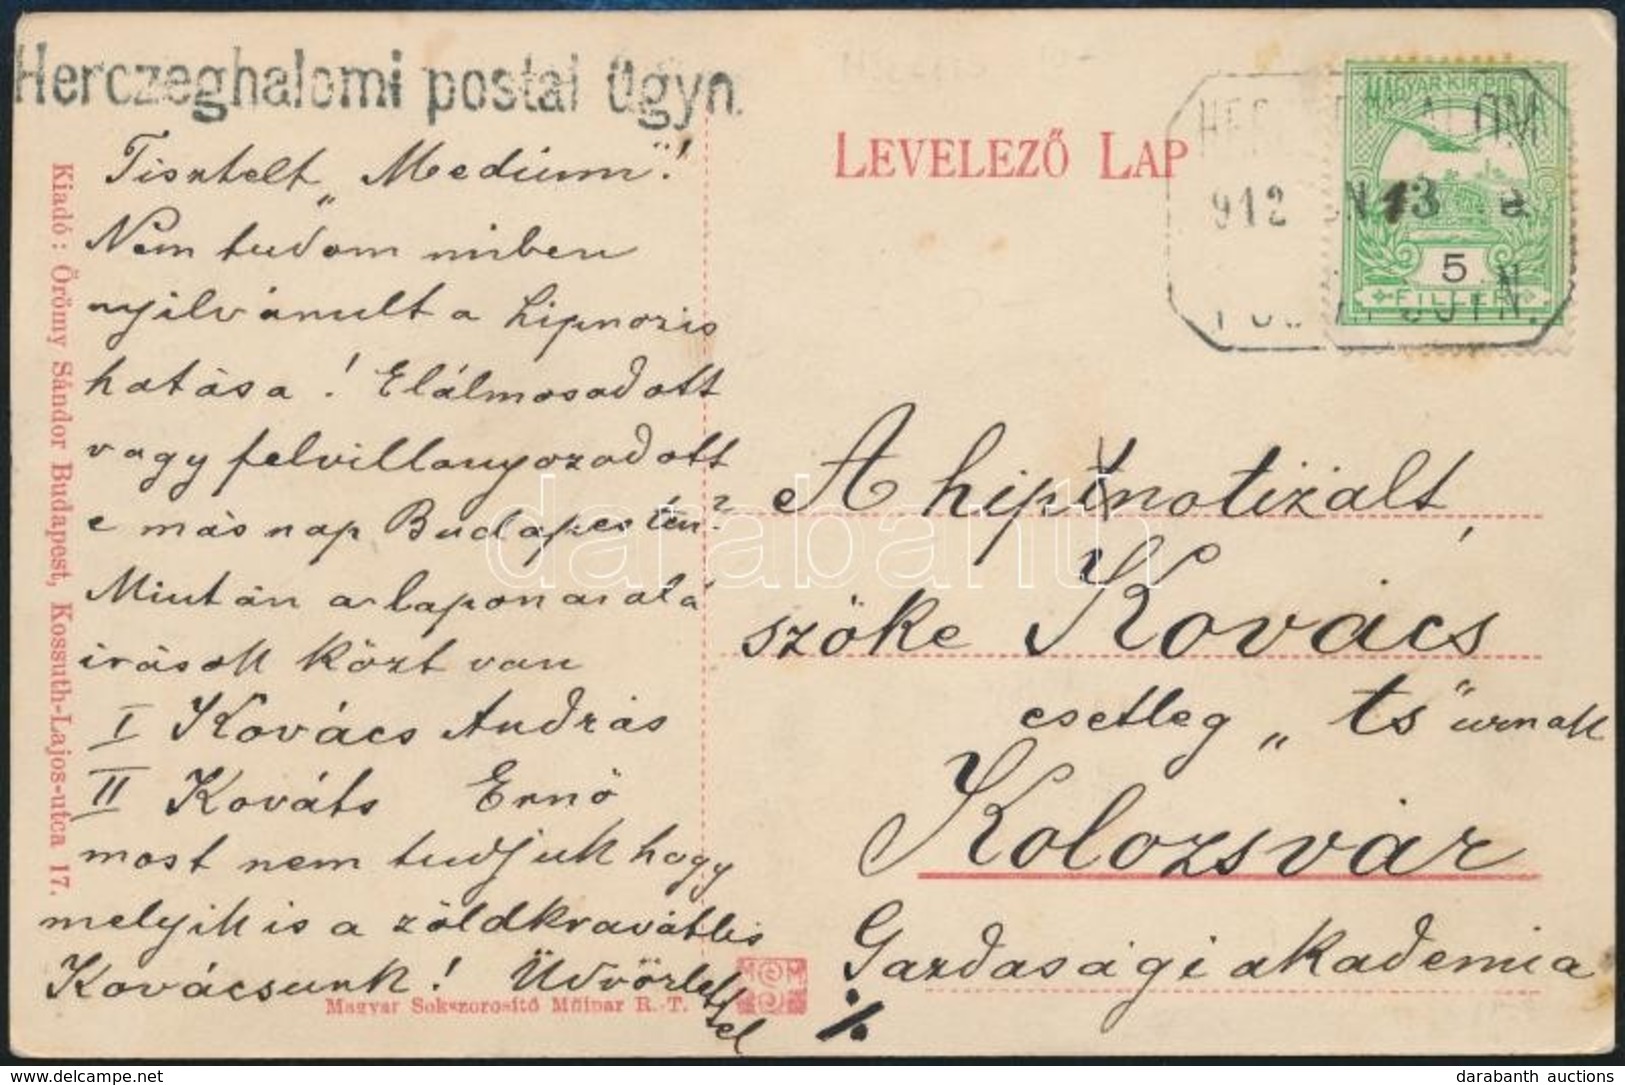 Herczeghalomi postai ügyn.
LEVELEZŐ LAP
912 13
5
FILLÉR
MAGYAR KIR. POSTA
Tisztelt „Medium"!
Nem tudom miben
nyilvánult a hipnozis
hatása! Elálmosodott
vagy felvillanyozodott
e másnap Budapesten?
Miután a lapon az alá
irások közt van
I Kovács András
II Kováts Ernö
most nem tudjuk hogy
melyik is a zöldkravátlis
Kovácsunk! Üdvözlettel
A hipnotizált,
szöke Kovács
esetleg „ts" urnak
Kolozsvár
Gazdasági akademia
%
Kiadó: Örömy Sándor Budapest, Kossuth-Lajos-utca 17.
Magyar Sokszorositó Müipar R.-T.
darabanth
delcampe.net
darabanth auctions